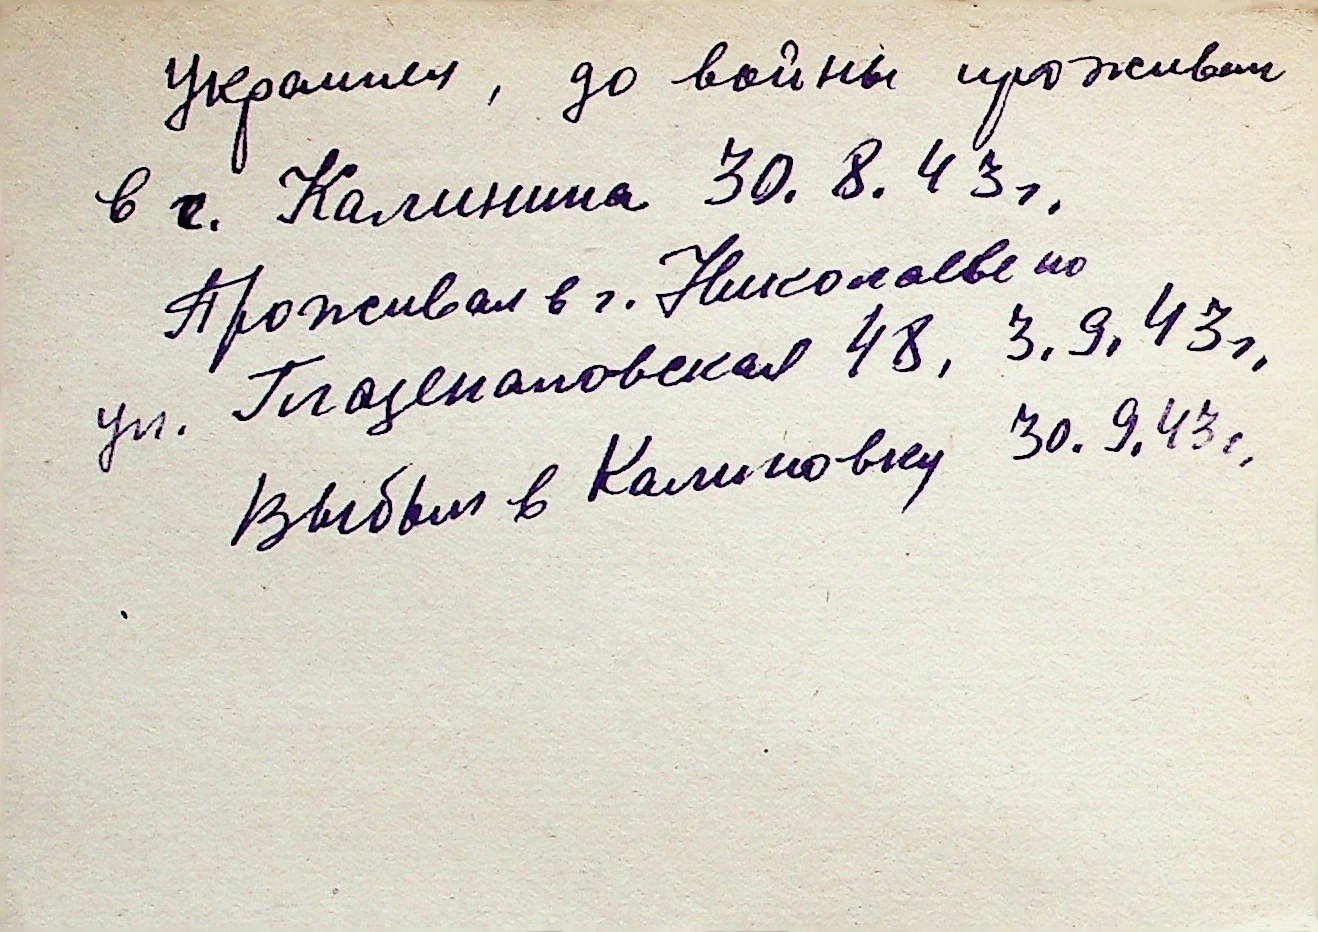 Украинец, до войны проживал
в с. Калинина 30. 8. 43 г.
Проживал в г. Николаеве по
ул. Глазенаповская 48, 3. 9. 43 г,
Выбыл в Калиновку 30. 9. 43 г.